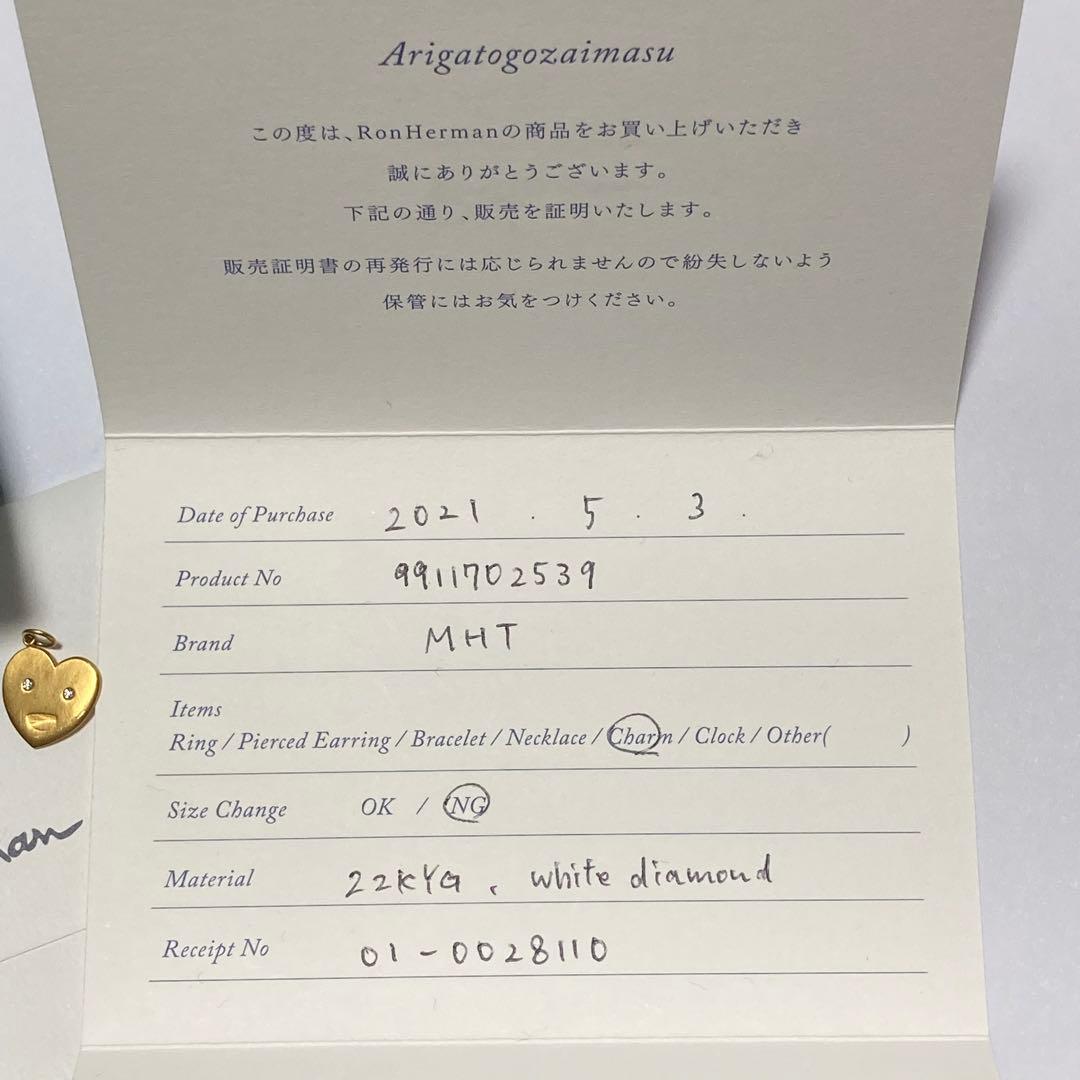 Arigatogozaimasu
この度は、RonHermanの商品をお買い上げいただき
誠にありがとうございます。
下記の通り、販売を証明いたします。
販売証明書の再発行には応じられませんので紛失しないよう
保管にはお気をつけください。
Date of Purchase 2021 . 5 . 3 .
Product No 9911702539
Brand MHT
Items
Ring / Pierced Earring / Bracelet / Necklace / Charm / Clock / Other( )
Size Change OK / NG
Material 22KYG 、 white diamond
Receipt No 01-0028110